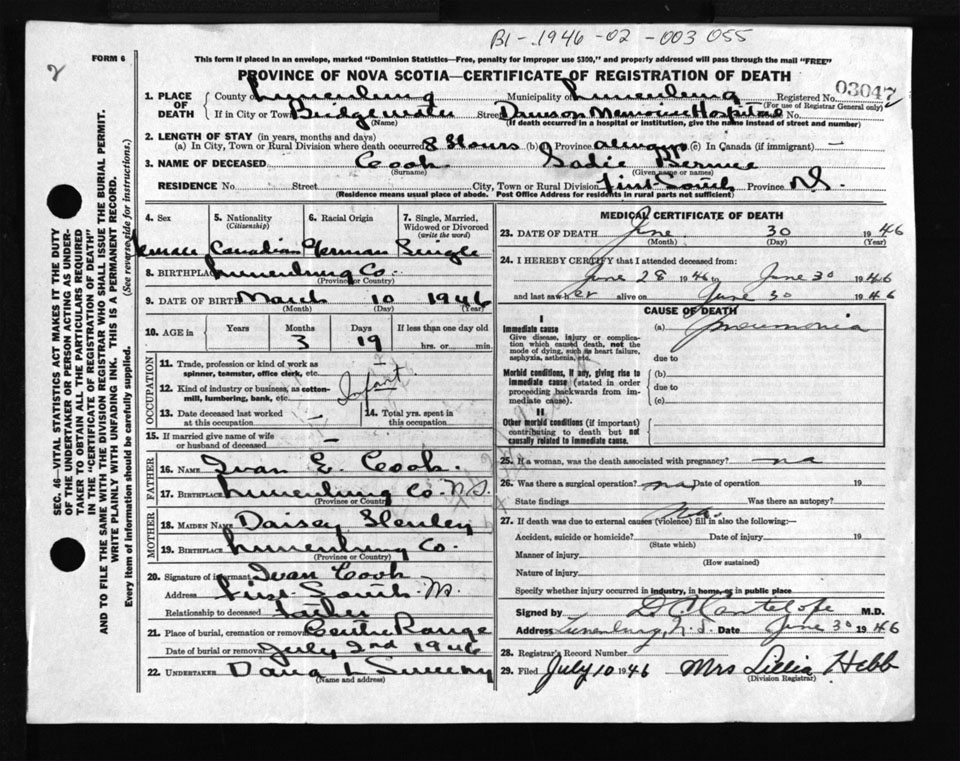 B1-.1946-02-003055
2
FORM 6
This form if placed in an envelope, marked "Dominion Statistics—Free, penalty for improper use $300," and properly addressed will pass through the mail "FREE"
PROVINCE OF NOVA SCOTIA—CERTIFICATE OF REGISTRATION OF DEATH
1. PLACE OF DEATH
County of Lunenburg Municipality of Lunenburg Registered No. 03047
(For use of Registrar General only)
If in City or Town Bridgewater Street Dawson Memorial Hospital No.
(Name) (If death occurred in a hospital or institution, give the name instead of street and number)
2. LENGTH OF STAY (in years, months and days)
(a) In City, Town or Rural Division where death occurred 8 Hours (b) Province always (c) In Canada (if immigrant) —
3. NAME OF DECEASED Cook Sadie Bernice
(Surname) (Given name or names)
RESIDENCE No. Street City, Town or Rural Division First South Province N.S.
(Residence means usual place of abode. Post Office Address for residents in rural parts not sufficient)
4. Sex 5. Nationality (Citizenship) 6. Racial Origin 7. Single, Married, Widowed or Divorced (write the word)
Female Canadian German Single
8. BIRTHPLACE Lunenburg Co.
(Province or Country)
9. DATE OF BIRTH March 10 1946
(Month) (Day) (Year)
10. AGE in Years Months Days If less than one day old
3 19 hrs. or min.
OCCUPATION
11. Trade, profession or kind of work as spinner, teamster, office clerk, etc.
12. Kind of industry or business, as cotton-mill, lumbering, bank, etc. Infant
13. Date deceased last worked at this occupation
14. Total yrs. spent in this occupation
15. If married give name of wife or husband of deceased —
FATHER
16. NAME Ivan E. Cook.
17. BIRTHPLACE Lunenburg Co. N.S.
(Province or Country)
MOTHER
18. MAIDEN NAME Daisey
19. BIRTHPLACE Lunenburg Co.
(Province or Country)
20. Signature of informant Ivan Cook
Address First South N.S.
Relationship to deceased Father
21. Place of burial, cremation or removal Centre Range
Date of burial or removal July 2nd 1946
22. UNDERTAKER Sweeny
(Name and address)
MEDICAL CERTIFICATE OF DEATH
23. DATE OF DEATH June 30 1946
(Month) (Day) (Year)
24. I HEREBY CERTIFY that I attended deceased from:
June 28 1946 to June 30 1946
and last saw her alive on June 30 1946
CAUSE OF DEATH
I
Immediate cause
Give disease, injury or complication which caused death, not the mode of dying, such as heart failure, asphyxia, asthenia, etc.
(a) Pneumonia
due to
Morbid conditions, if any, giving rise to immediate cause (stated in order proceeding backwards from immediate cause).
(b)
due to
(c)
II
Other morbid conditions (if important) contributing to death but not causally related to immediate cause.
25. If a woman, was the death associated with pregnancy? no
26. Was there a surgical operation? no Date of operation 19
State findings Was there an autopsy?
27. If death was due to external causes (violence) fill in also the following:—
Accident, suicide or homicide? Date of injury 19
(State which)
Manner of injury
(How sustained)
Nature of injury
Specify whether injury occurred in industry, in home, or in public place
Signed by M.D.
Address Lunenburg, N.S. Date June 30 1946
28. Registrar's Record Number
29. Filed July 10 1946 Mrs Lillia Hebb
(Division Registrar)
SEC. 46—VITAL STATISTICS ACT MAKES IT THE DUTY
OF THE UNDERTAKER OR PERSON ACTING AS UNDER-
TAKER TO OBTAIN ALL THE PARTICULARS REQUIRED
IN THE "CERTIFICATE OF REGISTRATION OF DEATH"
AND TO FILE THE SAME WITH THE DIVISION REGISTRAR WHO SHALL ISSUE THE BURIAL PERMIT.
WRITE PLAINLY WITH UNFADING INK. THIS IS A PERMANENT RECORD.
Every item of information should be carefully supplied. (See reverse side for instructions.)